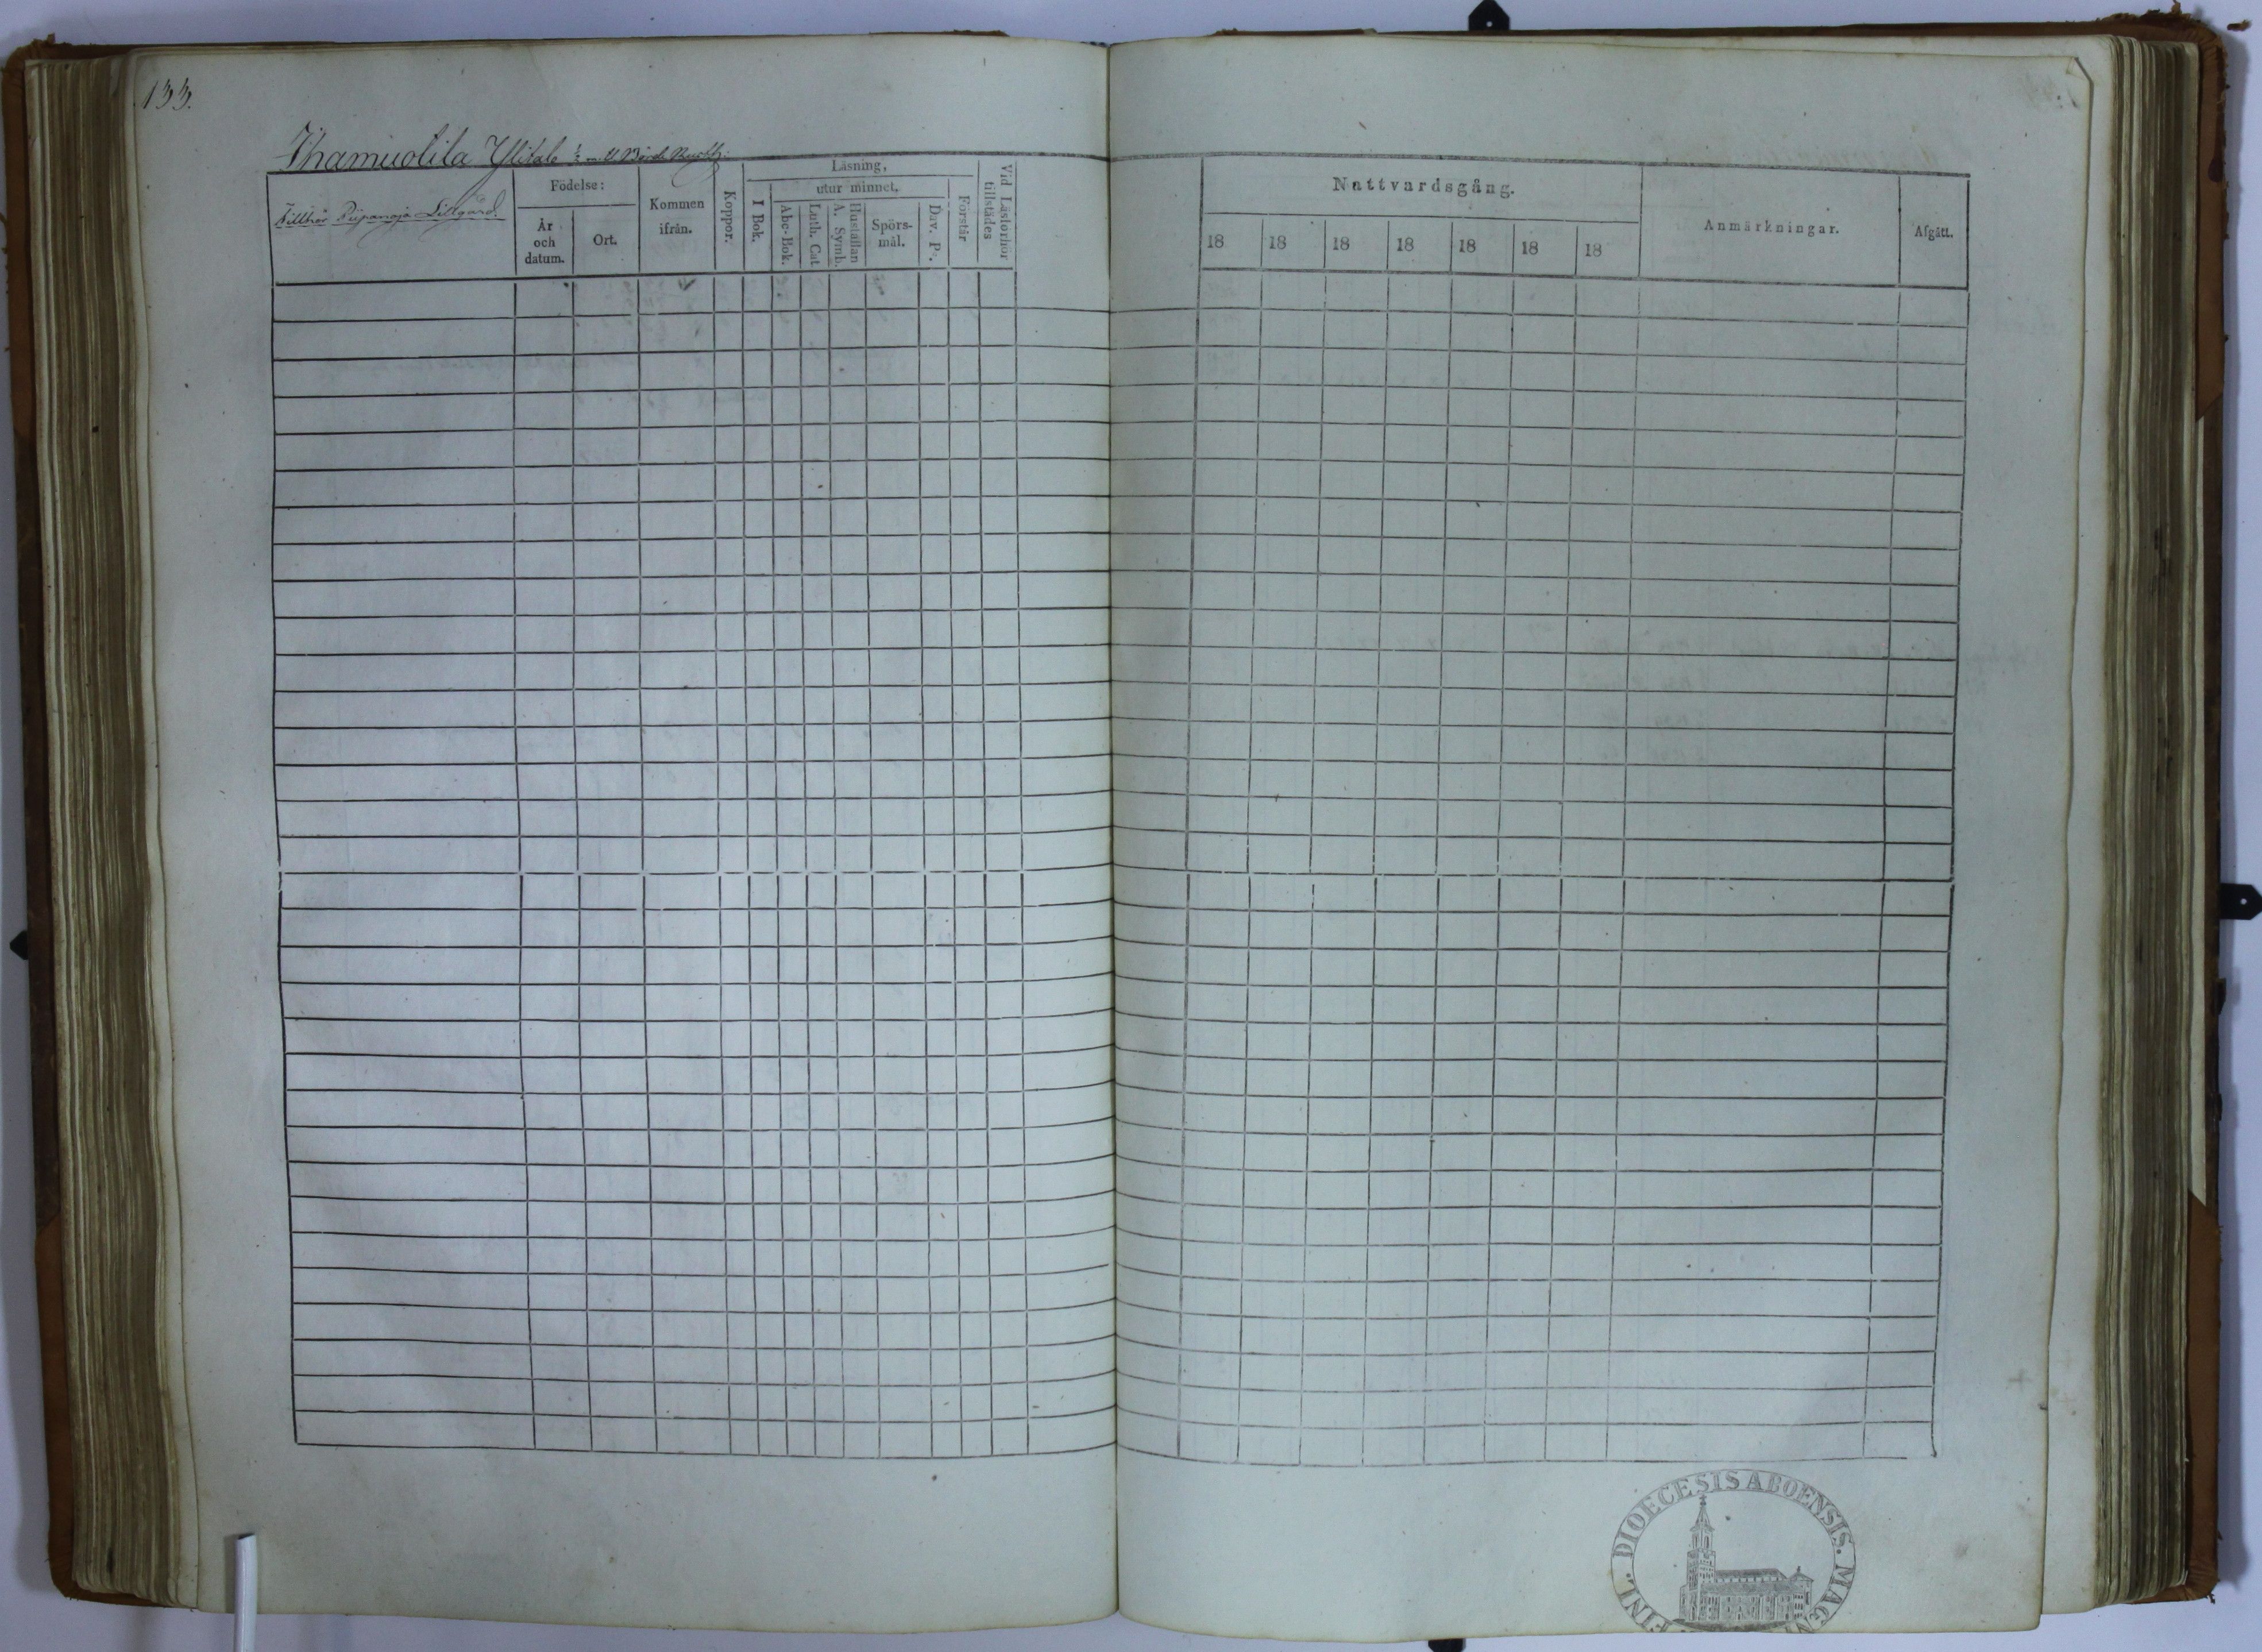 133.
Ihamuotila Ylitalo ½
Tillhör Riipanoja Lillgård.
Födelse:
År och datum.
Ort.
Kommen ifrån.
Koppor.
Läsning,
utur minnet.
I Bok.
Abc-Bok.
Luth. Cat
A. Symb.
Hustaflan
Spörs-mål.
Dav. Ps.
Förstår
Vid Läsförhör tillstädes
Nattvardsgång.
18 18 18 18 18 18 18
Anmärkningar.
Afgått.
FINL. DIOECESIS ABOENSIS. MAGN